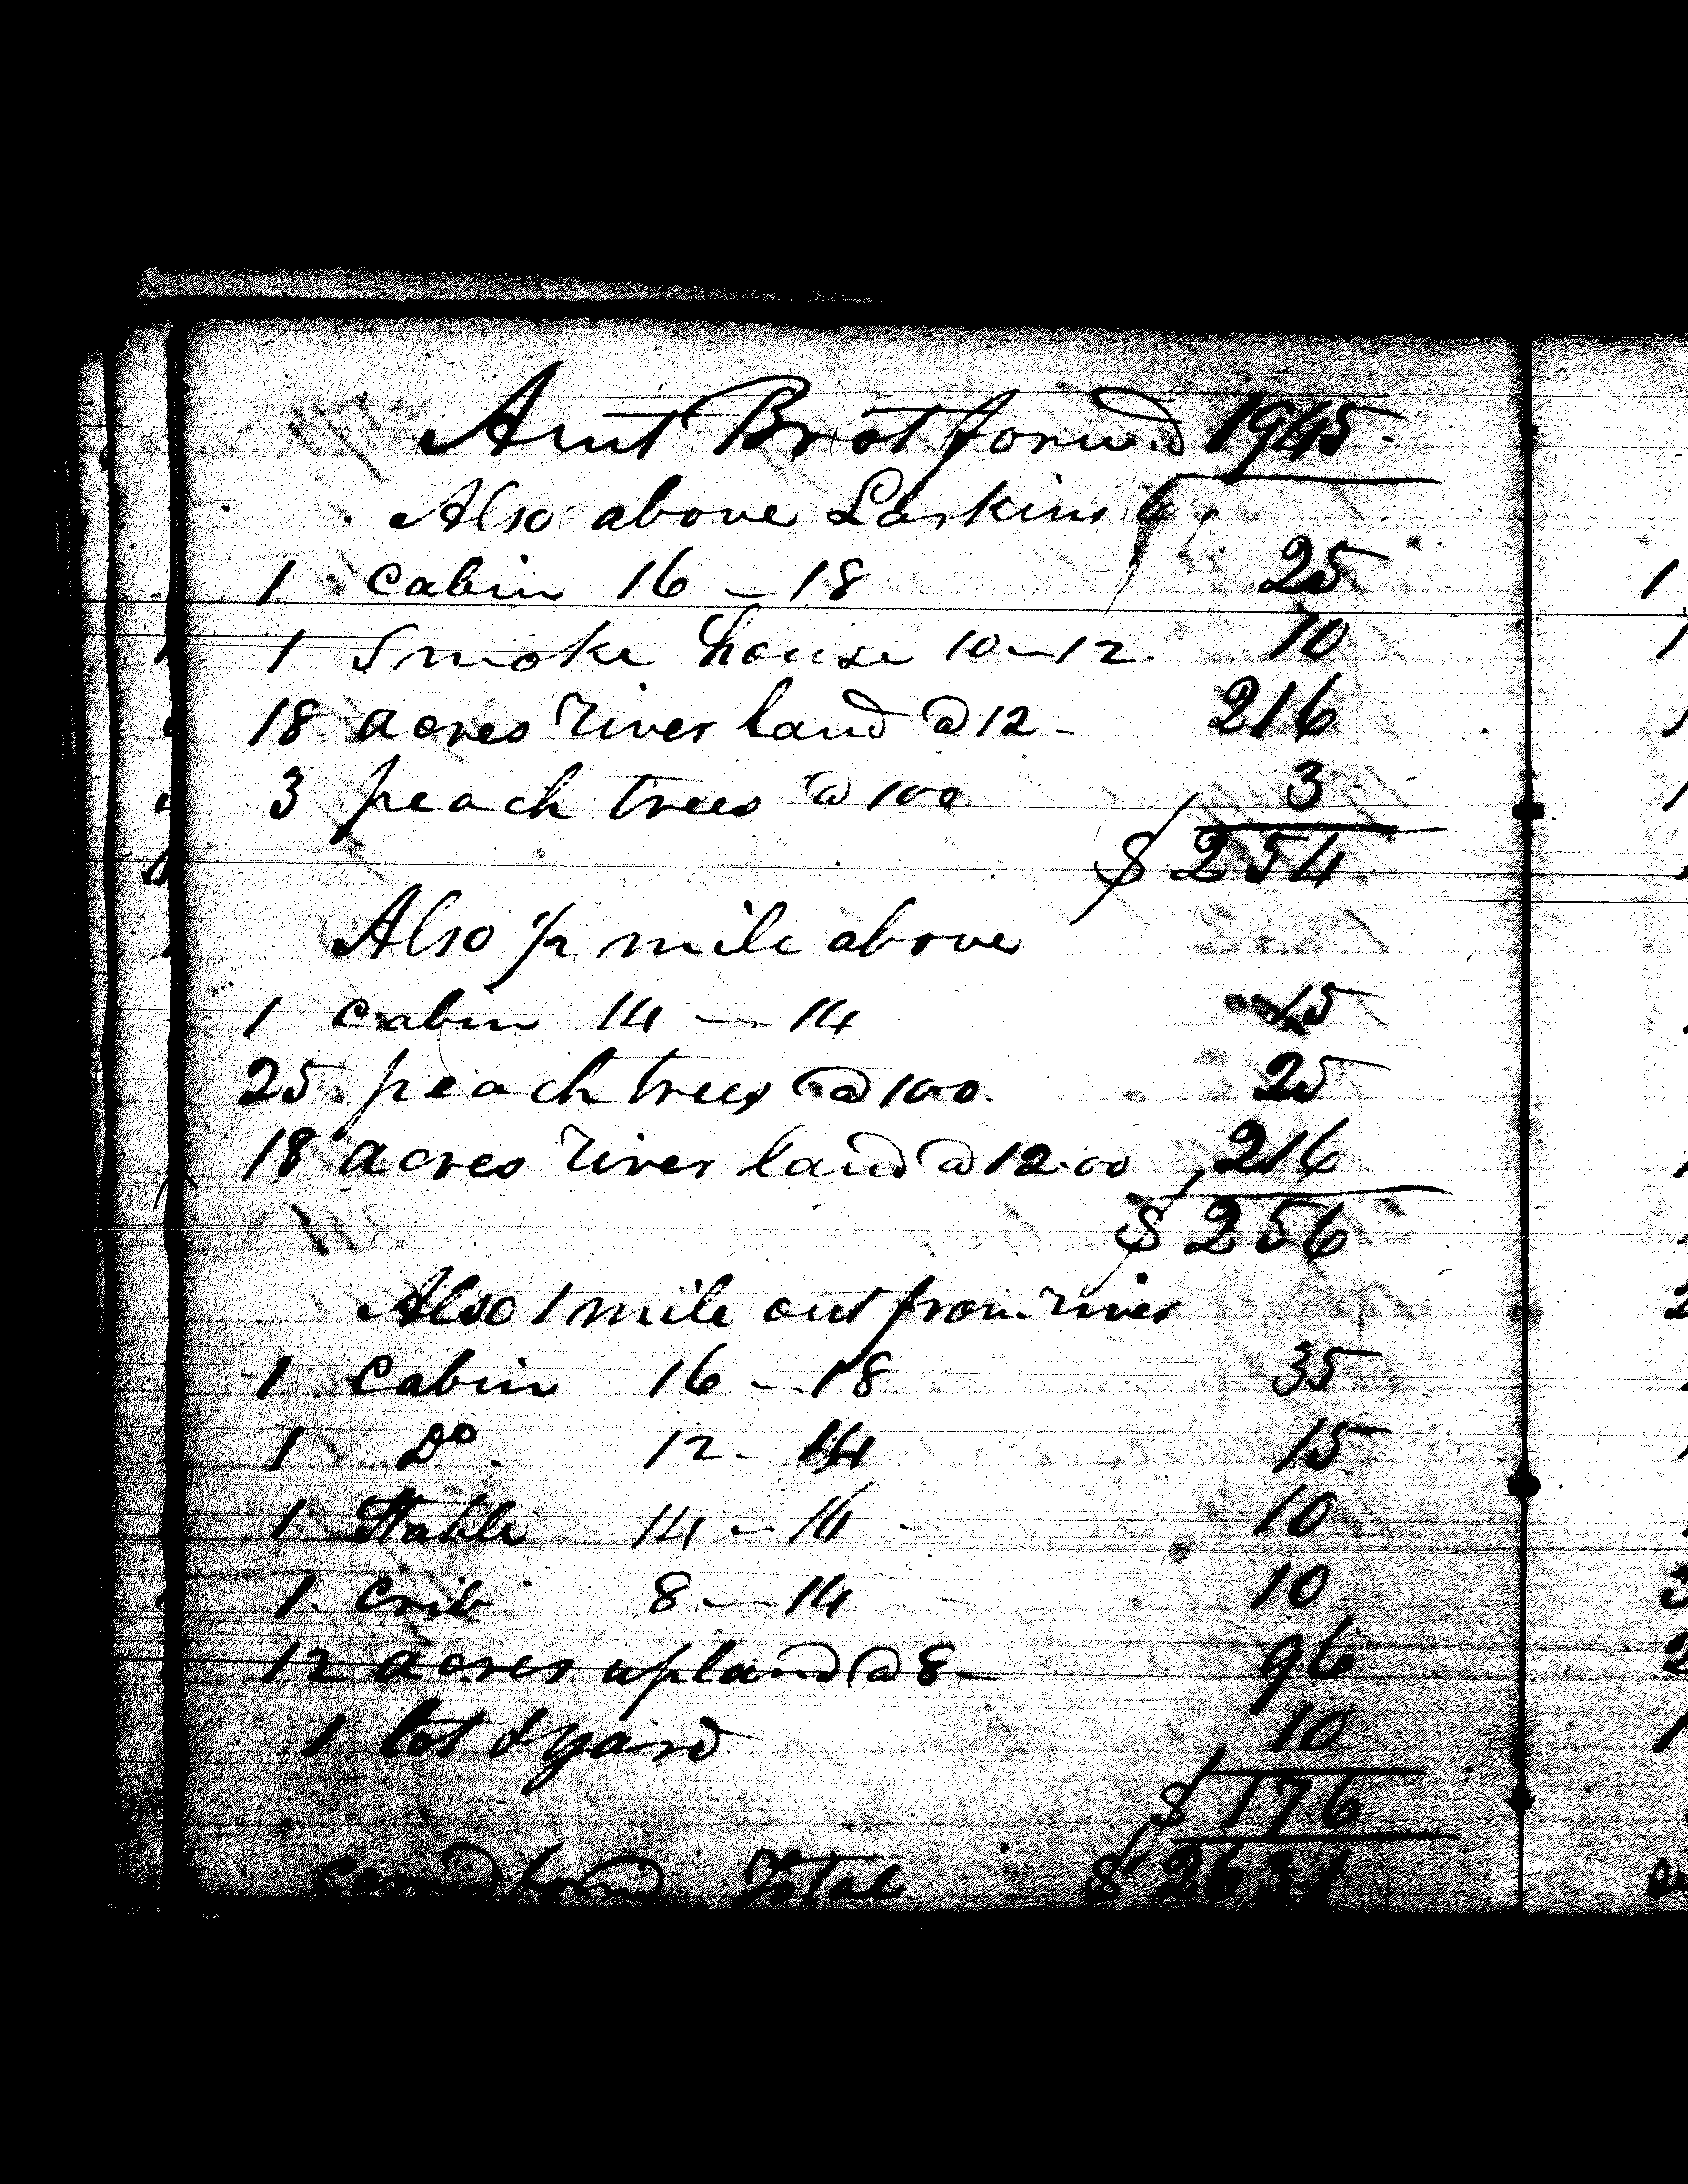 Amt Brot forwd 1945
Also above Larkins
1 Cabin 16 - 18 25
1 Smoke house 10 - 12 10
18 acres river land @ 12 - 216
3 peach trees @ 100 3
$254
Also 1/2 mile above
1 Cabin 14 - 14 15
25 peach trees @ 100 25
18 acres river land @ 12.00 216
$256
Also 1 mile out from river
1 Cabin 16 - 18 35
1 Do 12 - 14 15
1 Stable 14 - 16 10
1 Crib 8 - 14 10
12 acres upland @ 8 - 96
1 lot & yard 10
$176
Total $2631